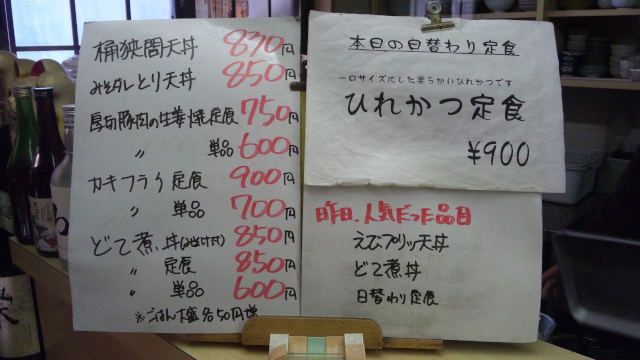 桶狭間天丼 830円
みそダレとり天丼 850円
厚切豚肉の生姜焼定食 750円
〃 単品 600円
カキフライ定食 900円
〃 単品 700円
どて煮、丼(お吸付) 850円
〃 定食 850円
〃 単品 600円
※ごはん大盛各50円増
本日の日替わり定食
一口サイズにした柔らかいひれかつです
ひれかつ定食
¥900
昨日、人気だった品目
えびプリッ天丼
どて煮丼
日替わり定食